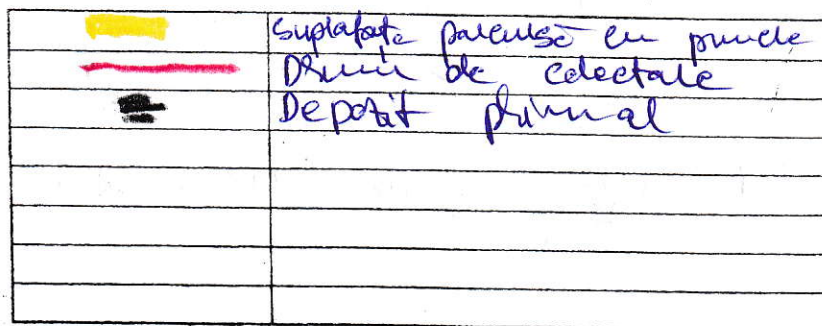 Suprafata parcursă cu prucle
Drum de colectare
Depozit primar